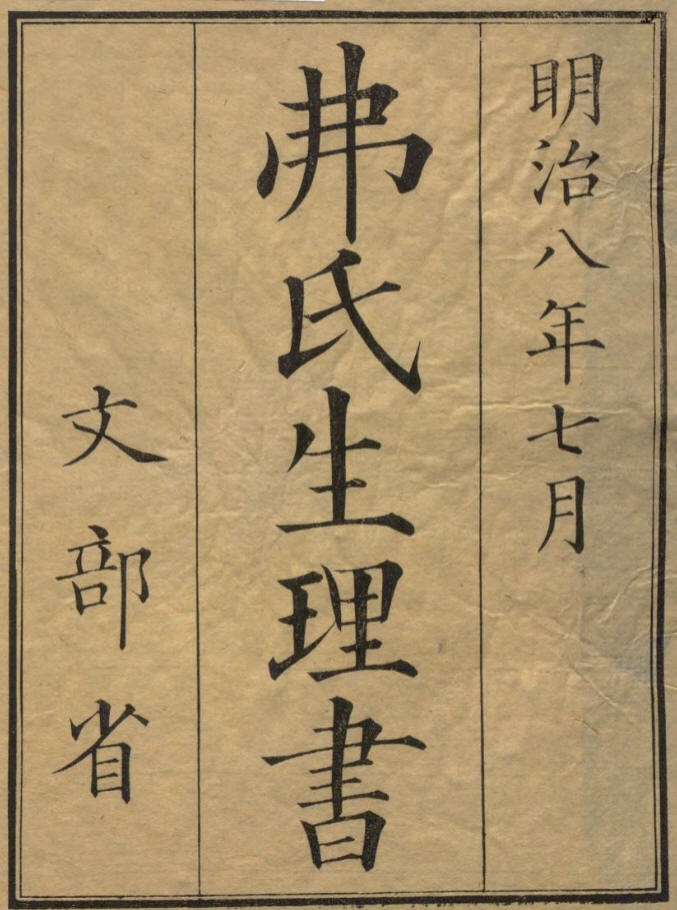 明治八年七月
弗氏生理書
文部省